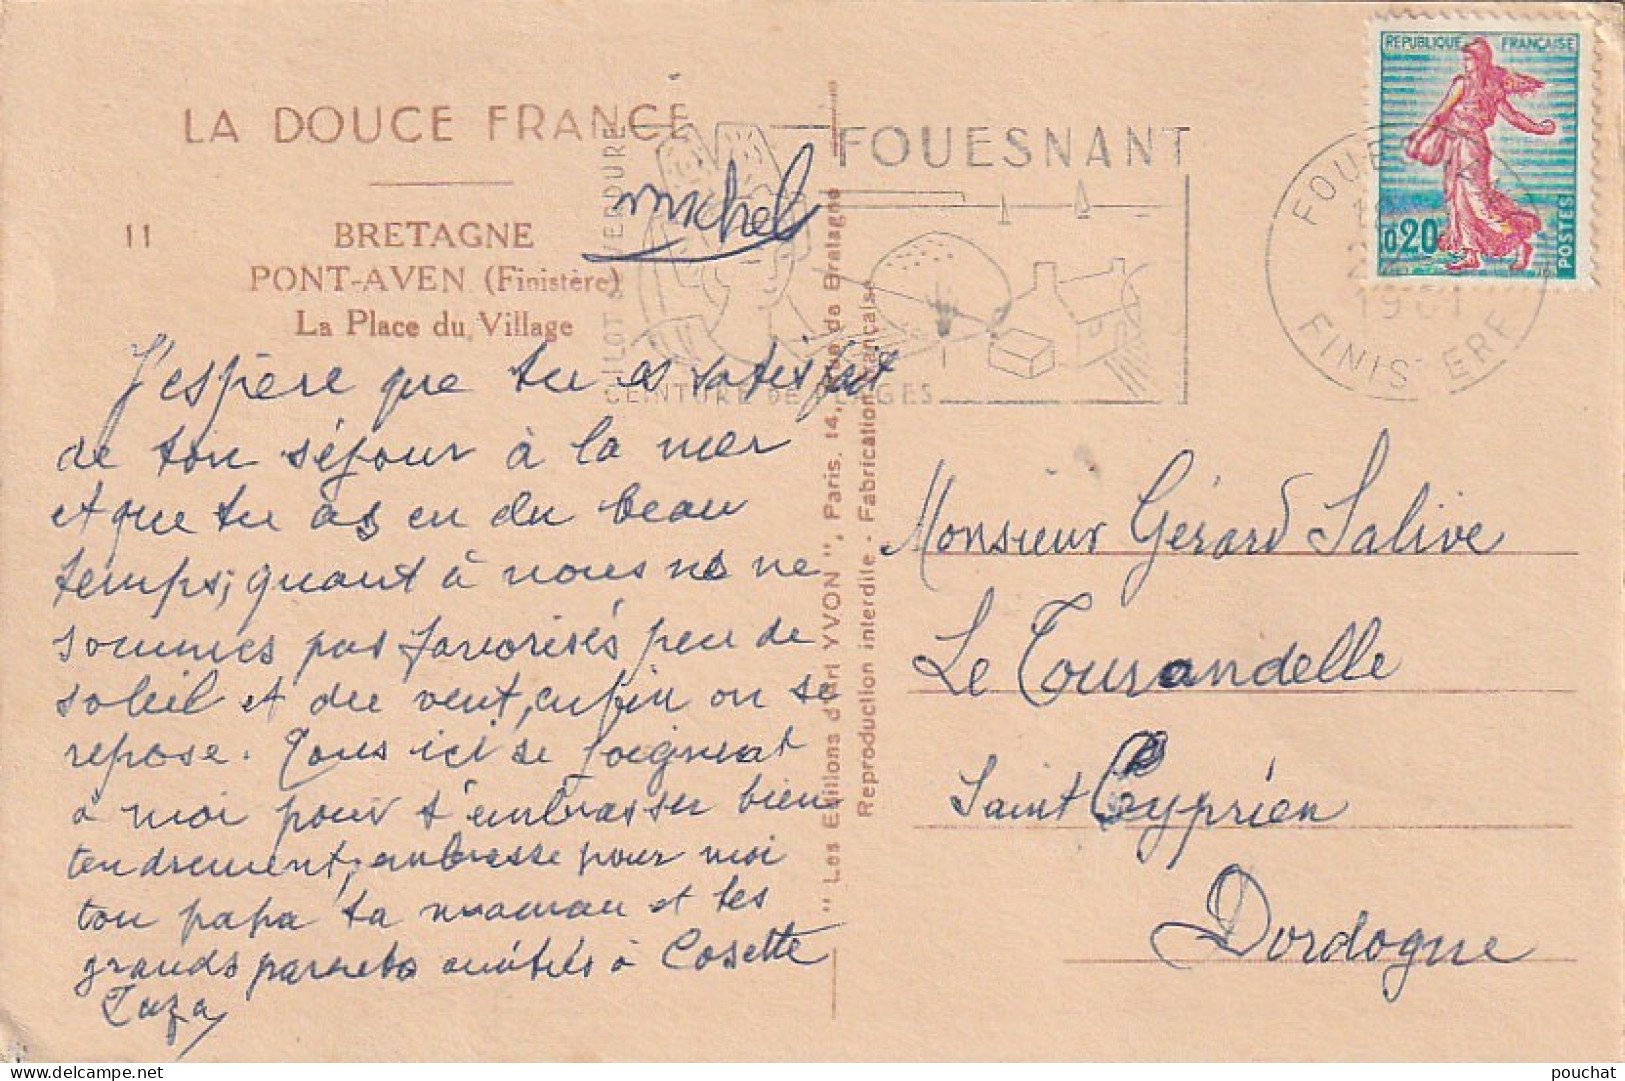 LA DOUCE FRANCE
11
BRETAGNE
PONT-AVEN (Finistère)
La Place du Village
michel
J'espère que tu es satisfait
de ton séjour à la mer
et que tu as eu du beau
temps, quant à nous ns ne
sommes pas favorisés peu de
soleil et du vent, enfin on se
repose. Tous ici se joignent
à moi pour t'embrasser bien
tendrement, embrasse pour moi
ton papa ta maman et tes
grands parents amitiés à Cosette
"Les Editions d'Art YVON", Paris, 14, Rue de Bretagne
Reproduction interdite - Fabrication Française
ILOT VERDURE
FOUESNANT
CEINTURE DE PLAGES
FINISTERE
1961
REPUBLIQUE FRANÇAISE
0,20
POSTES
Monsieur Gérard Salive
Le Tourandelle
Saint Cyprien
Dordogne
pouchat